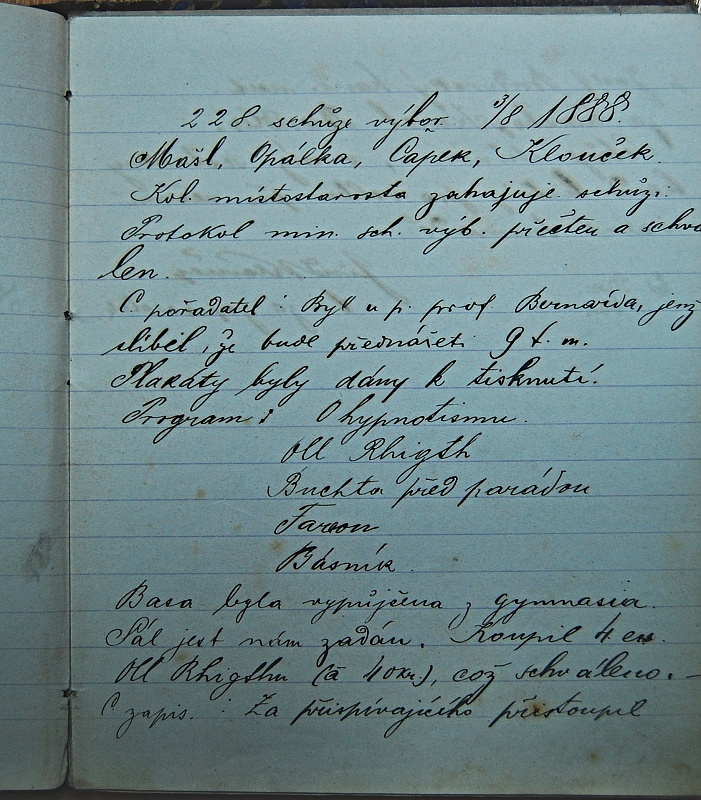 228. schůze výbor. 3/8 1888.
Mášl, Opálka, Čapek, Klouček.
Kol. místostarosta zahajuje schůzi.
Protokol min. sch. výb. přečten a schvá
len.
Č. pořadatel: Byl u p. prof. Bernarda, jenž
slíbil, že bude přednášeti 9 t. m.
Plakáty byly dány k tisknutí.
Program: O hypnotismu.
Oll Rhigth
Buchta před parádou
Básník.
Basa byla vypůjčena z gymnasia.
Sál jest nám zadán. Koupil 4 ex.
Oll Rhigthu (à 40 kr.), což schváleno. –
Č zapis. : Za přispívajícího přistoupil